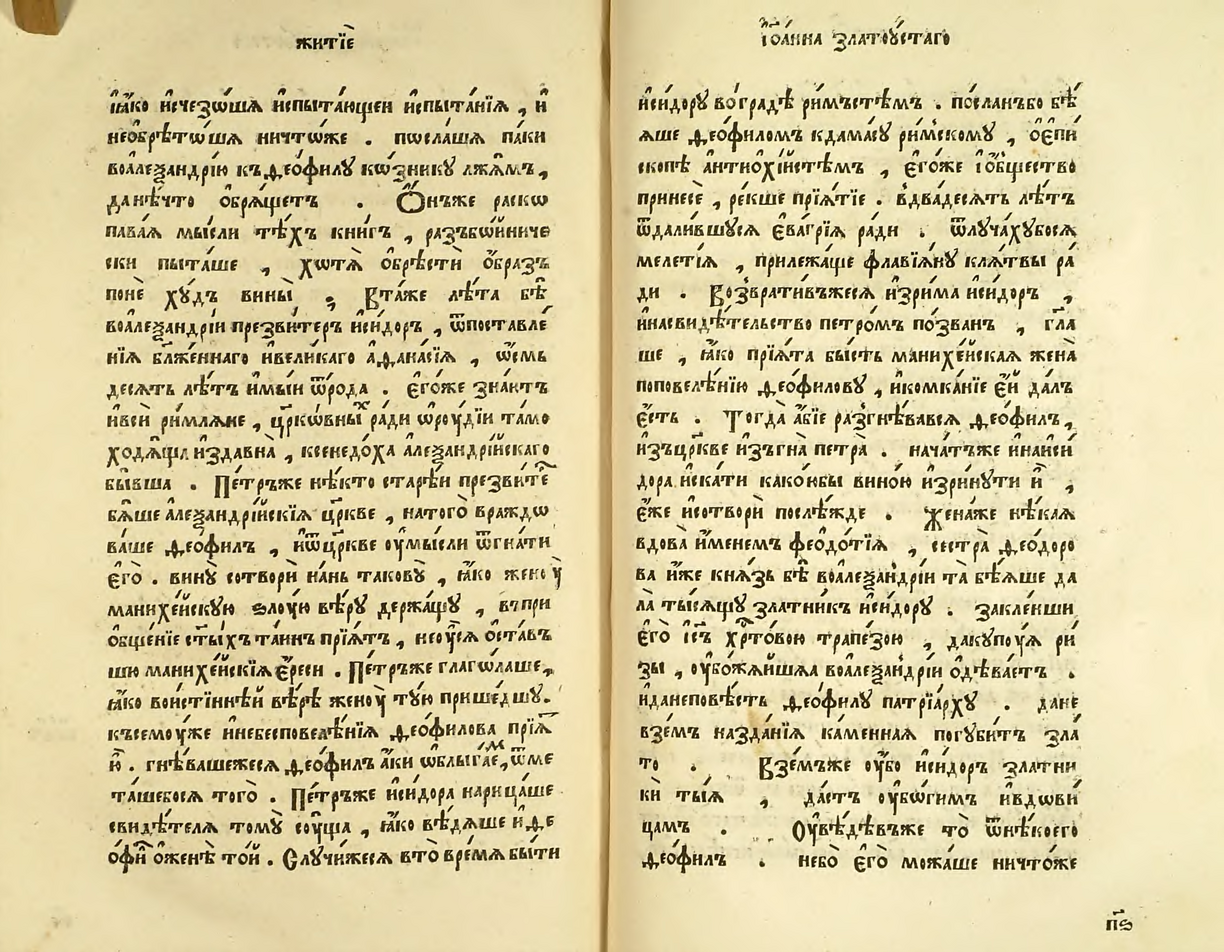 житїѐ
ꙗ҆́ко и҆счезѡ́шѧ и҆спыта́ющеи и҆спыта́нїѧ , и҆
необрѣ́тѡшѧ ничто́же . пѡсла́шѧ па́ки
воалеѯандрі́ю къѳео́филꙋ кѡ́зникꙋ лжѧ́мъ ,
данѣ́что обрѧ́щетъ . Ѻ҆́нъже раскѡ
пава́ѧ мы́сли тѣ́хъ кни́гъ , разъбѡ́йниче
ски пыта́ше , хотѧ̀ обрѣстѝ о҆́бразъ
понѐ хꙋ́дъ вины̀ , Втажe лѣ́та бѣ̀
воалеѯандрі́и презви́теръ и҆си́доръ , ѿпоставле́
нїѧ бл҃же́ннаго ивели́каго аѳана́сїѧ , ѡ҆́смь
десѧтъ лѣ́тъ и҆мы́и ѿро́да . є҆го́же зна́ютъ
ивсѝ ри́млѧне , цр҃ко́вныⷯ ра́ди ѡ҆рꙋ́дїи та́мо
ходѧ́ща издавна̀ , ксенедо́ха алеѯандрі́йскаго
бы́вша . Пе́тръже нѣ́кто старѣ́и презви́теⷬ
бѧ́ше алеѯандрі́йскїѧ цр҃кве , натого̀ враждѡ
ва́ше ѳео́филъ , иѿцр҃кве оумы́сли ѿгна́ти
є҆го̀ . винꙋ̀ сотворѝ на́нь таковꙋ̀ , ꙗ҆́ко женоу̀
манихе́йскꙋю ѕло́ую вѣ́рꙋ держа́щꙋ , въпри
ѻбще́нїе ст҃ы́хъ та́инъ прїѧ́тъ , неоу҆́сѧ оста́въ
шю манихе́йскїѧ є҆́реси . Пе́тръже глаго́лаше ,
ꙗ҆́ко вои́стиннѣй вѣ́рѣ женоу̀ тꙋ́ю прише́дшꙋ .
късемоу́же инебесповелѣ́нїѧ ѳео́филова прїѧⷮ
ю҆̀ . гнѣ́вашежесѧ ѳео́филъ а҆́ки ѡблыга́еⷨ , ѿме
та́шебосѧ того̀ . Пе́тръже и҆си́дора нарица́ше
свидѣ́телѧ томꙋ̀ соу́ща , ꙗ҆́ко вѣ́дѧше и ѳе
о́фиⷧ оженѣ̀ то́й . Слꙋчи́жесѧ вто̀ вре́мѧ бы́ти
і҆ѡа́нна златоꙋ́стаго
и҆си́дорꙋ во гра́дѣ ри́мъстѣмъ . по́сланъбо бѣ̀
ѧше ѳео́филомъ кдама́сꙋ ри́мскомꙋ , оє҆пи́
скопѣ антиохі́йстѣмъ , є҆го́же іо҆́бщество
принесѐ , ре́кше прїѧ́тїе . вдва́десѧтъ лѣ́тъ
ѿдали́вшꙋсѧ є҆ва́грїѧ ра́ди . ѿлꙋча́хꙋбосѧ
меле́тїѧ , прилежа́ще флавїа́нꙋ клѧ́твы ра́
ди . Возврати́въжесѧ изри́ма и҆си́доръ ,
и҆насвидѣ́тельство петро́мъ по́званъ , гла
ше , ꙗ҆́ко прїѧта бы́сть манихе́йскаѧ жена̀
поповелѣ́нїю ѳео́филовꙋ , икомка́нїе є҆́й да́лъ
є҆́сть . Тогда̀ а҆́бїе разгнѣ́вавсѧ ѳео́филъ ,
изъцр҃кве изъгна̀ петра̀ . нача́тъже и҆наиси́
дора иска́ти како́ибы вино́ю изри́нꙋти и҆̀ ,
є҆́же исотворѝ послѣ́жде . Жена́же нѣ́каѧ
вдова̀ и҆́менемъ феодо́тїѧ , сестра̀ ѳео́доро
ва и҆́же кнѧ́зь бѣ̀ воалеѯандрі́и та̀ бѣ́ѧше да
ла̀ ты́сѧщꙋ златни́къ и҆си́дорꙋ . закле́нши
є҆го̀ і҆съ хр҃то́вою трапе́зою , дакꙋпоу́ѧ ри́
зы , оубо́жѧйшаѧ воалеѯандрі́и ѻдѣва́етъ .
иданеповѣ́сть ѳео́филꙋ патрїа́рхꙋ . дане
взе́мъ назда́нїѧ ка́меннаѧ погꙋби́тъ зла́
то . Взе́мъже оу҆́бо и҆си́доръ златни́
ки ты́ѧ , да́стъ оубѡ́гимъ ивдови́
цамъ . Оувѣ́дѣвъже то̀ ѿнѣ́коего
ѳео́филъ . небо̀ є҆го̀ можа́ше ничто́же
п҃ѕ